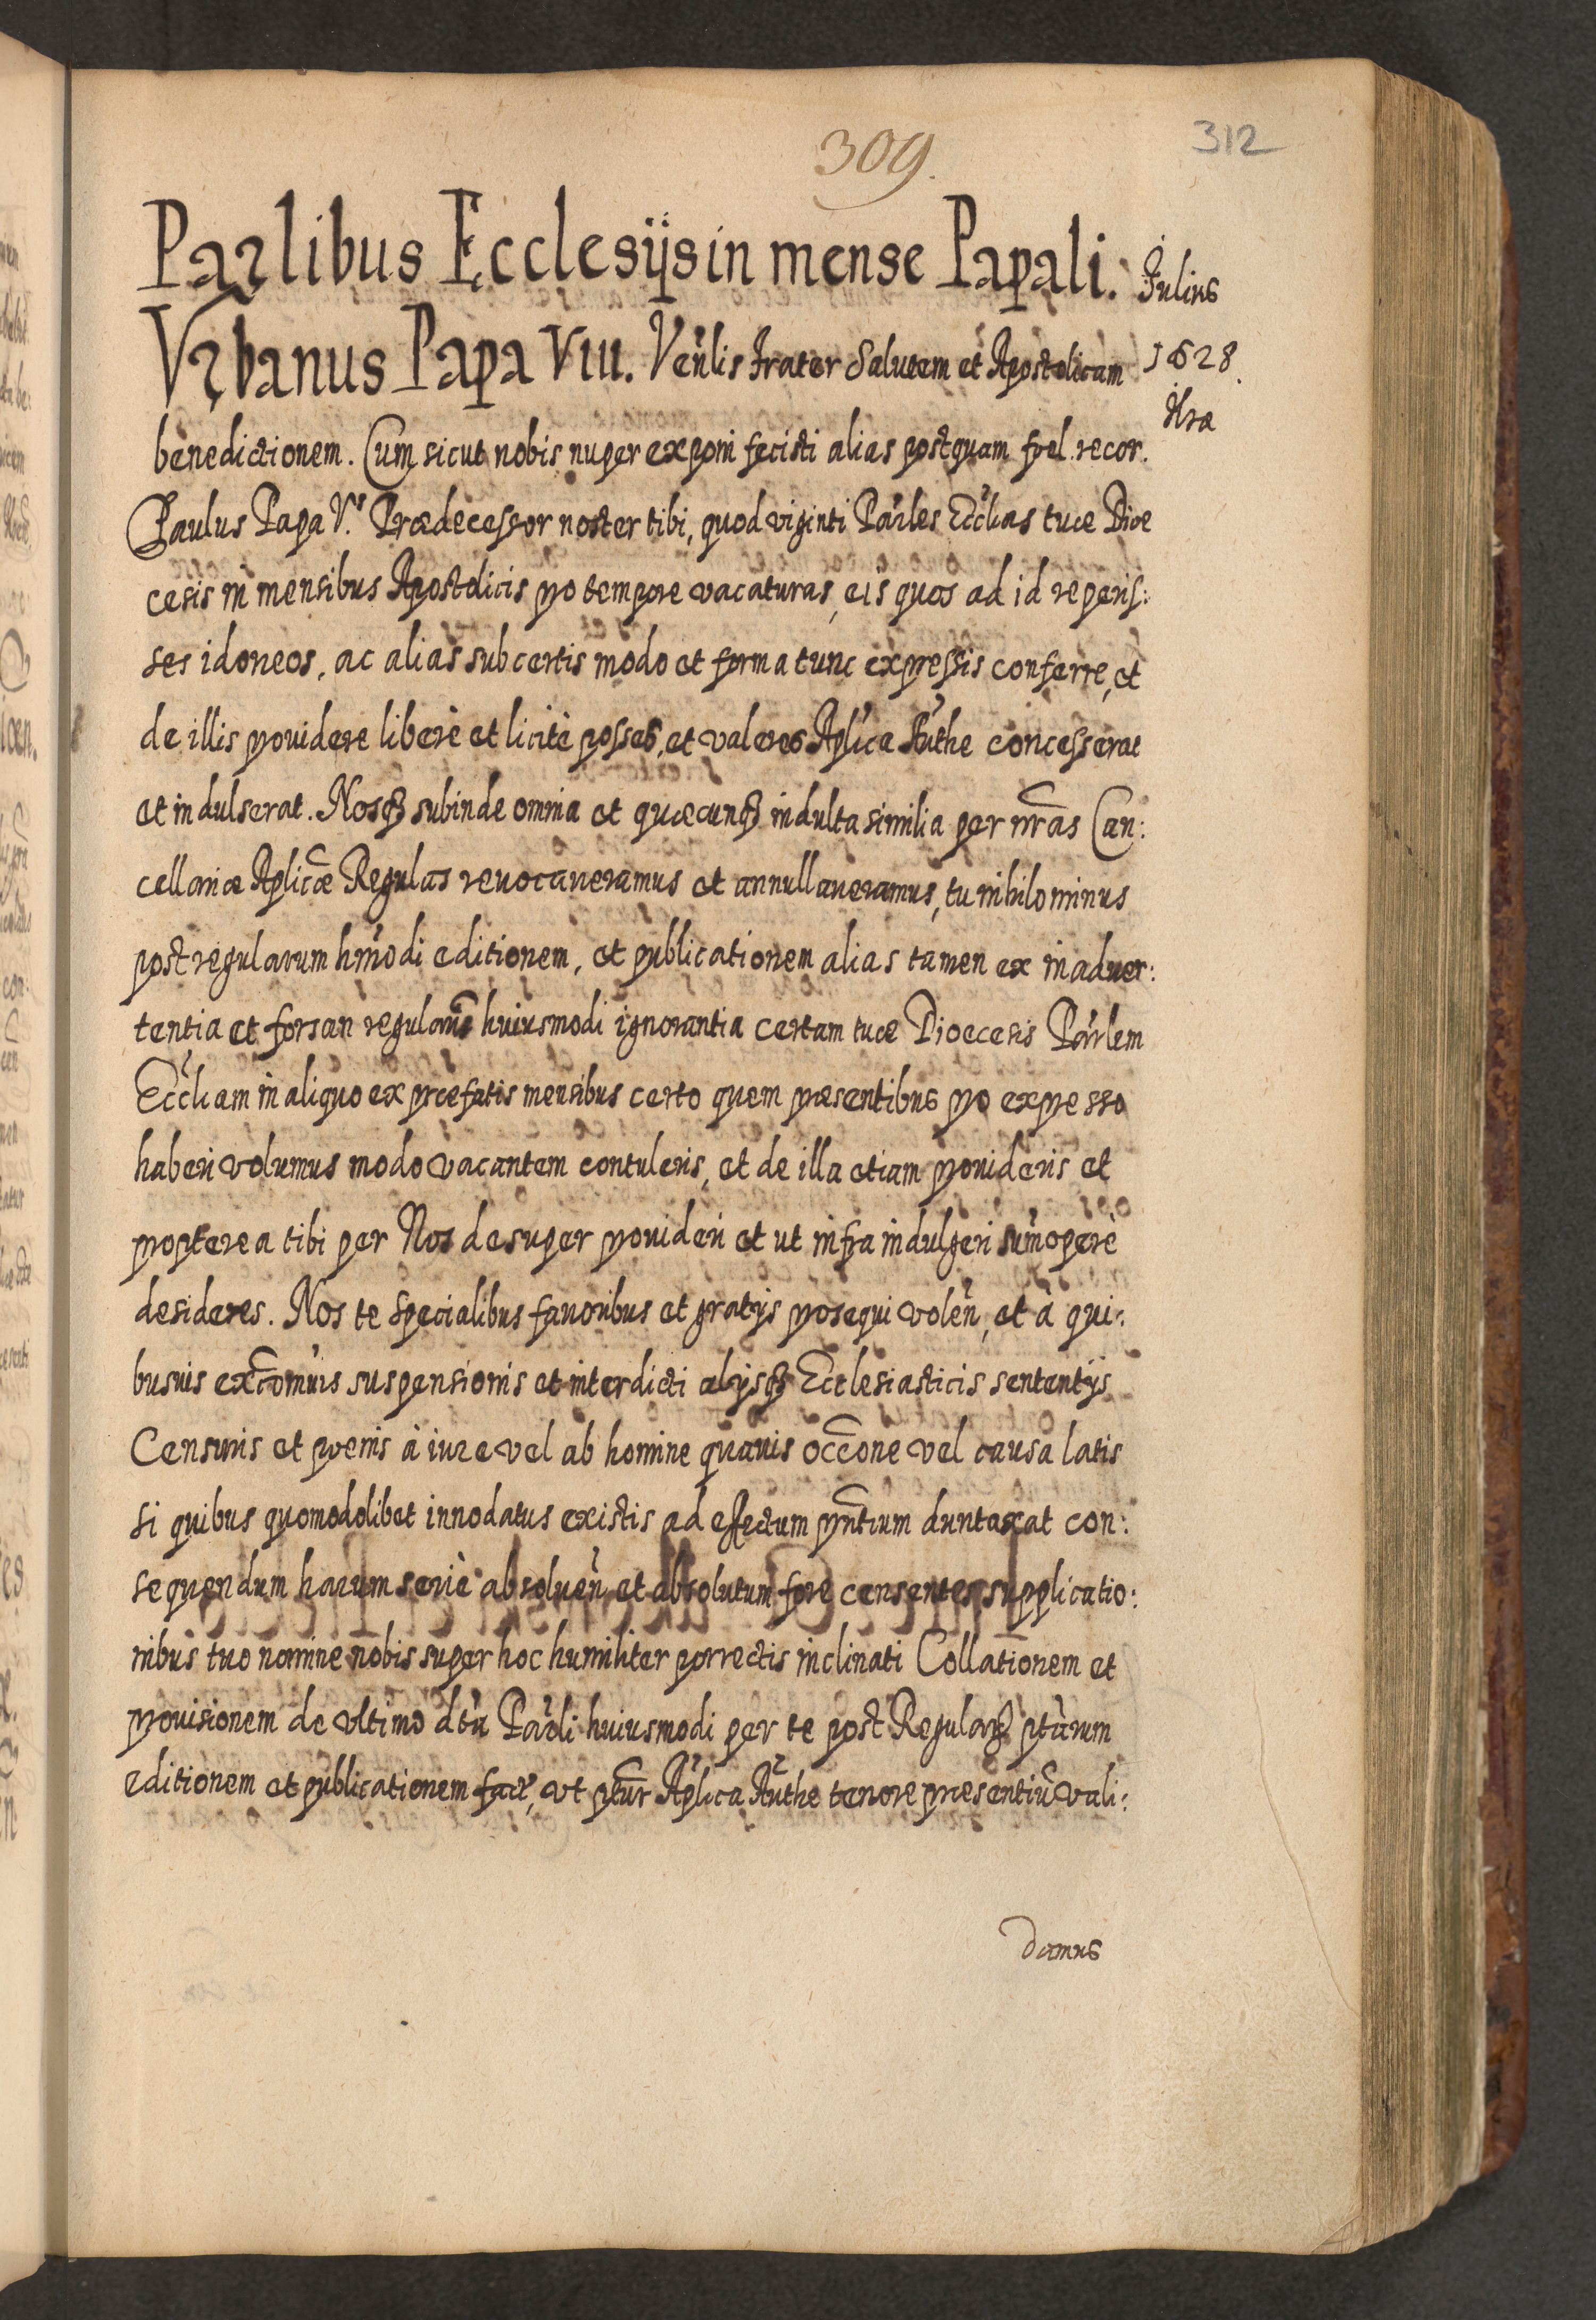 309.
312
Parlibus Ecclesijs in mense Papali.
Julius
1628.
Vrbanus Papa VIII. Venlis frater Salutem et Apostolicam
benedictionem. Cum sicut nobis nuper exponi fecisti alias postquam fel. recor.
Paulus Papa V.s Prædecessor noster tibi, quod viginti Parles Ecclias tuæ Dioe
cesis in mensibus Apostolicis pro tempore vacaturas, eis quos ad id reperis:
ses idoneos, ac alias sub certis modo et forma tunc expressis conferre, et
de illis prouidere liberè et licitè posses, et valeres Aplica Authe concesserat
et indulserat. Nosq3 subinde omnia et quæcunq3 indulta similia per nras Can:
cellariæ Aplicæ Regulas reuocaueramus et annullaueramus, tu nihilominus
post regularum hmodi editionem, et publicationem alias tamen ex inaduer:
tentia et forsan regularum huiusmodi ignorantia certam tuæ Dioecesis Parlem
Eccliam in aliquo ex præfatis mensibus certo quem præsentibus pro expresso
haberi volumus modo vacantem contuleris, et de illa etiam prouideris et
propterea tibi per Nos desuper prouideri et ut infra indulgeri sumoperè
desideres. Nos te specialibus fauoribus et gratijs prosequi volen, et à qui:
busuis excomuis suspensionis et interdicti alijsq3 Ecclesiasticis sententijs
Censuris et poenis à iure vel ab homine quauis occone vel causa latis
si quibus quomodolibet innodatus existis ad effectum pntium duntaxat con:
sequendum harum seriè absoluen, et absolutum fore censentes supplicatio:
nibus tuo nomine nobis super hoc humiliter porrectis inclinati Collationem et
prouisionem de ultimo dta Parli huiusmodi per te post Regular3 ptarum
editionem et publicationem fact, vt ptur Aplica Authe tenore præsentiu vali:
damus